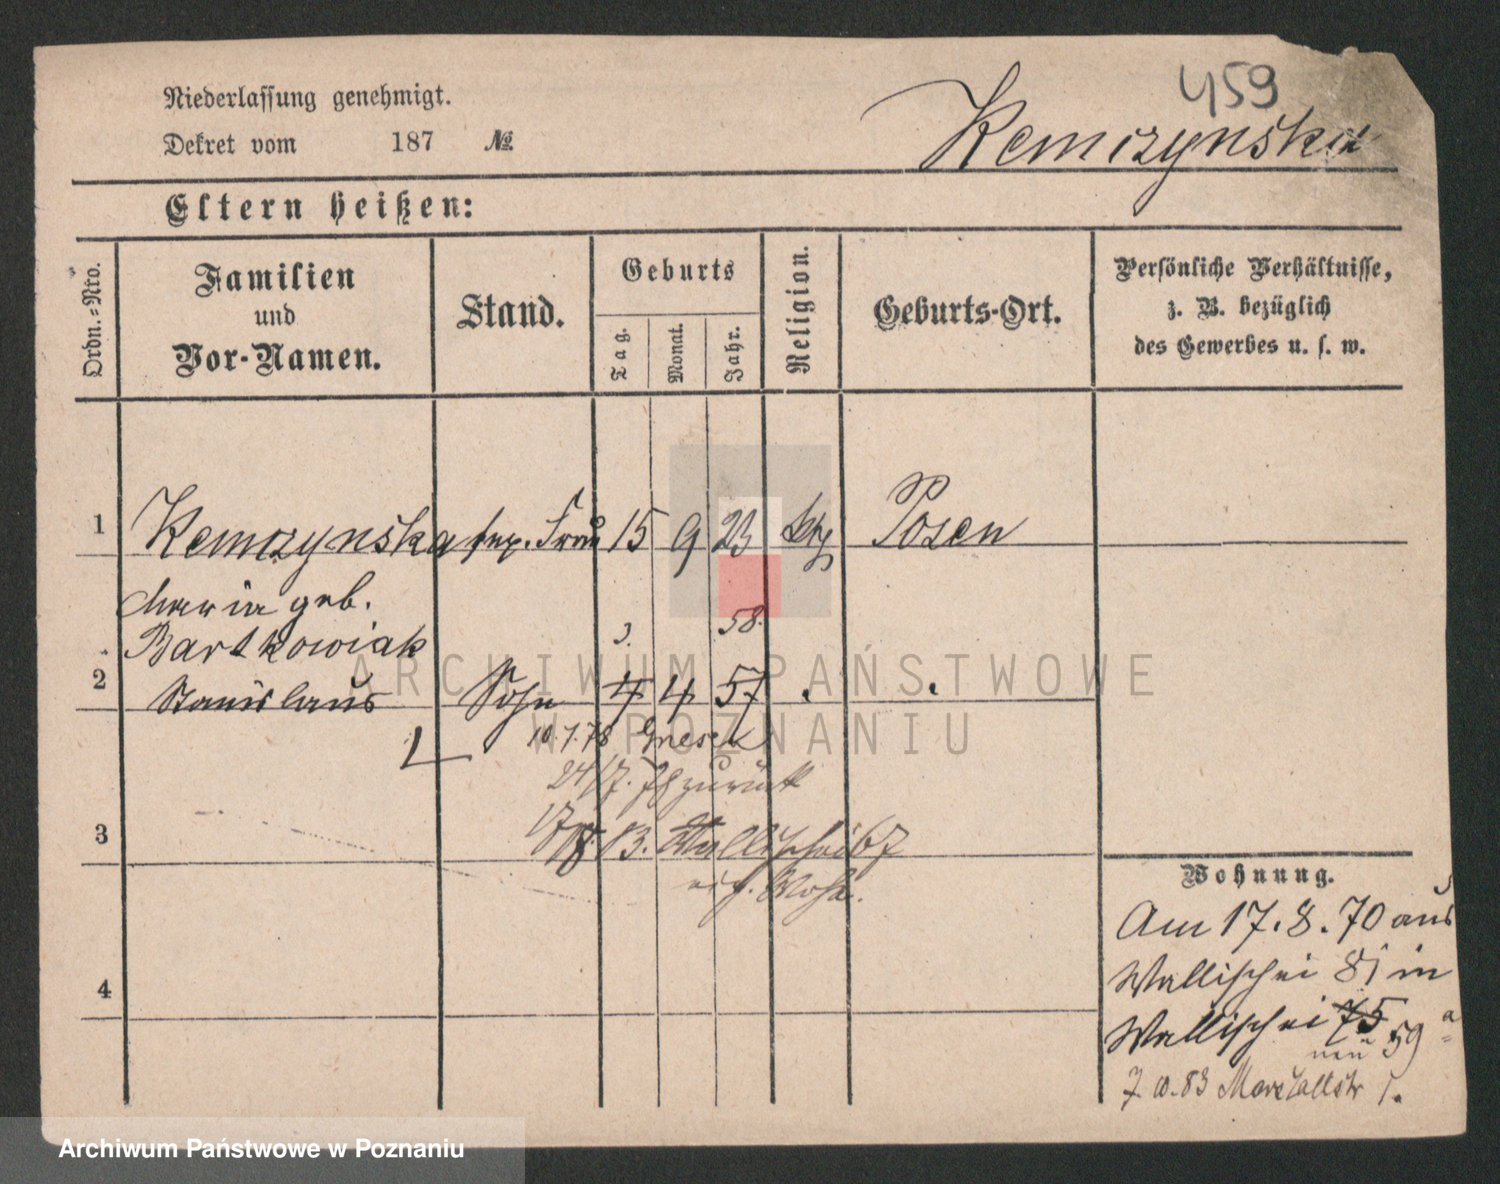 459
Niederlassung genehmigt.
Dekret vom 187 №
Kemczynska
Eltern heißen:
Ordn.-Nro.
Familien
und
Vor-Namen.
Stand.
Geburts
Tag.
Monat.
Jahr.
Religion.
Geburts-Ort.
Persönliche Verhältnisse,
z. B. bezüglich
des Gewerbes u. s. w.
1 Kemczynska sep. Frau 15 9 23 kth Posen
Maria geb.
Bartkowiak
3. 58.
2 Stanislaus Sohn 4 4 57
10.7.78 Gnesen
24/7. zurück
3
17/8 83. Wallischei 67
4
Wohnung.
Am 17. 8. 70 aus
Wallischei 81 in
Wallischei 75
neu 59 a
7.10.83 Marstallstr
ARCHIWUM PAŃSTWOWE
W POZNANIU
Archiwum Państwowe w Poznaniu